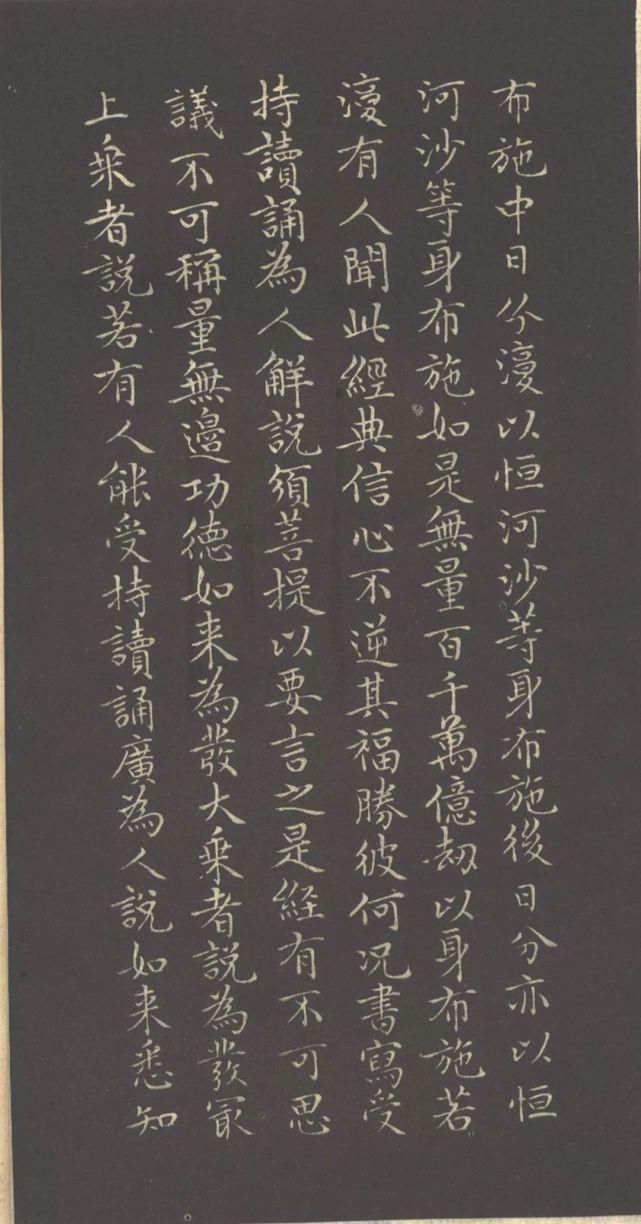 布施中日分復以恒河沙等身布施後日分亦以恒
河沙等身布施如是無量百千萬億劫以身布施若
復有人聞此經典信心不逆其福勝彼何況書寫受
持讀誦為人解說須菩提以要言之是経有不可思
議不可稱量無邊功德如来為發大乗者說為發冣
上乗者説若有人能受持讀誦廣為人說如来悉知